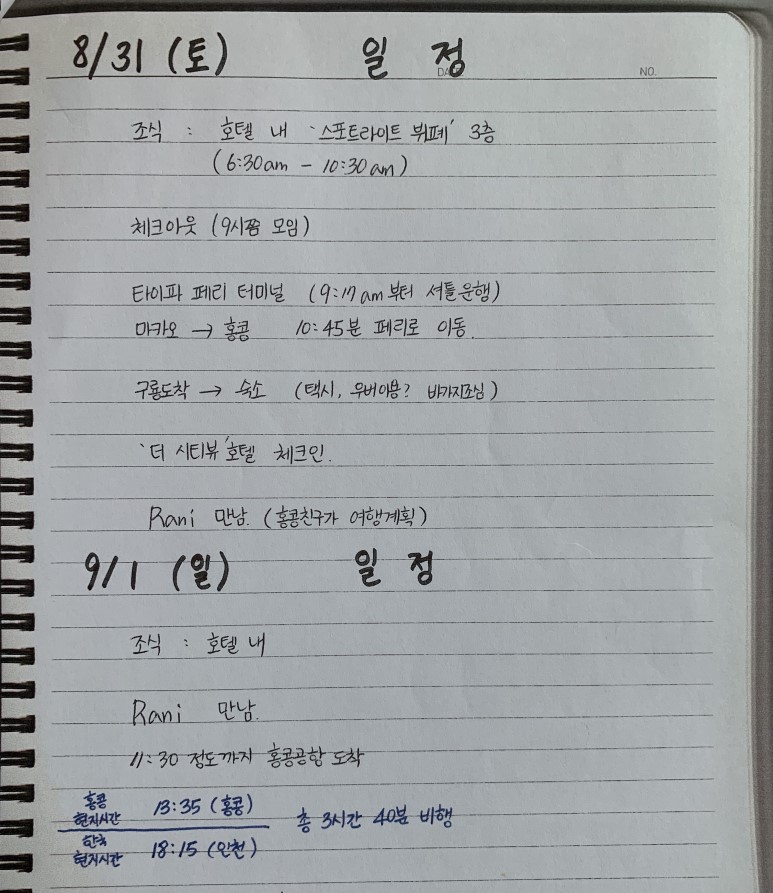 8/31 (토) 일 정
DA NO.
조식 : 호텔 내 '스포트라이트 뷔페' 3층
(6:30am - 10:30am)
체크아웃 (9시쯤 모임)
타이파 페리 터미널 (9:17am부터 셔틀운행)
마카오 → 홍콩 10:45분 페리로 이동.
구룡도착 → 숙소 (택시, 우버이용? 바가지조심)
'더 시티뷰' 호텔 체크인.
Rani 만남. (홍콩친구가 여행계획)
9/1 (일) 일 정
조식 : 호텔 내
Rani 만남.
11:30 정도까지 홍콩공항 도착
홍콩 현지시간 13:35 (홍콩) 총 3시간 40분 비행
한국 현지시간 18:15 (인천)